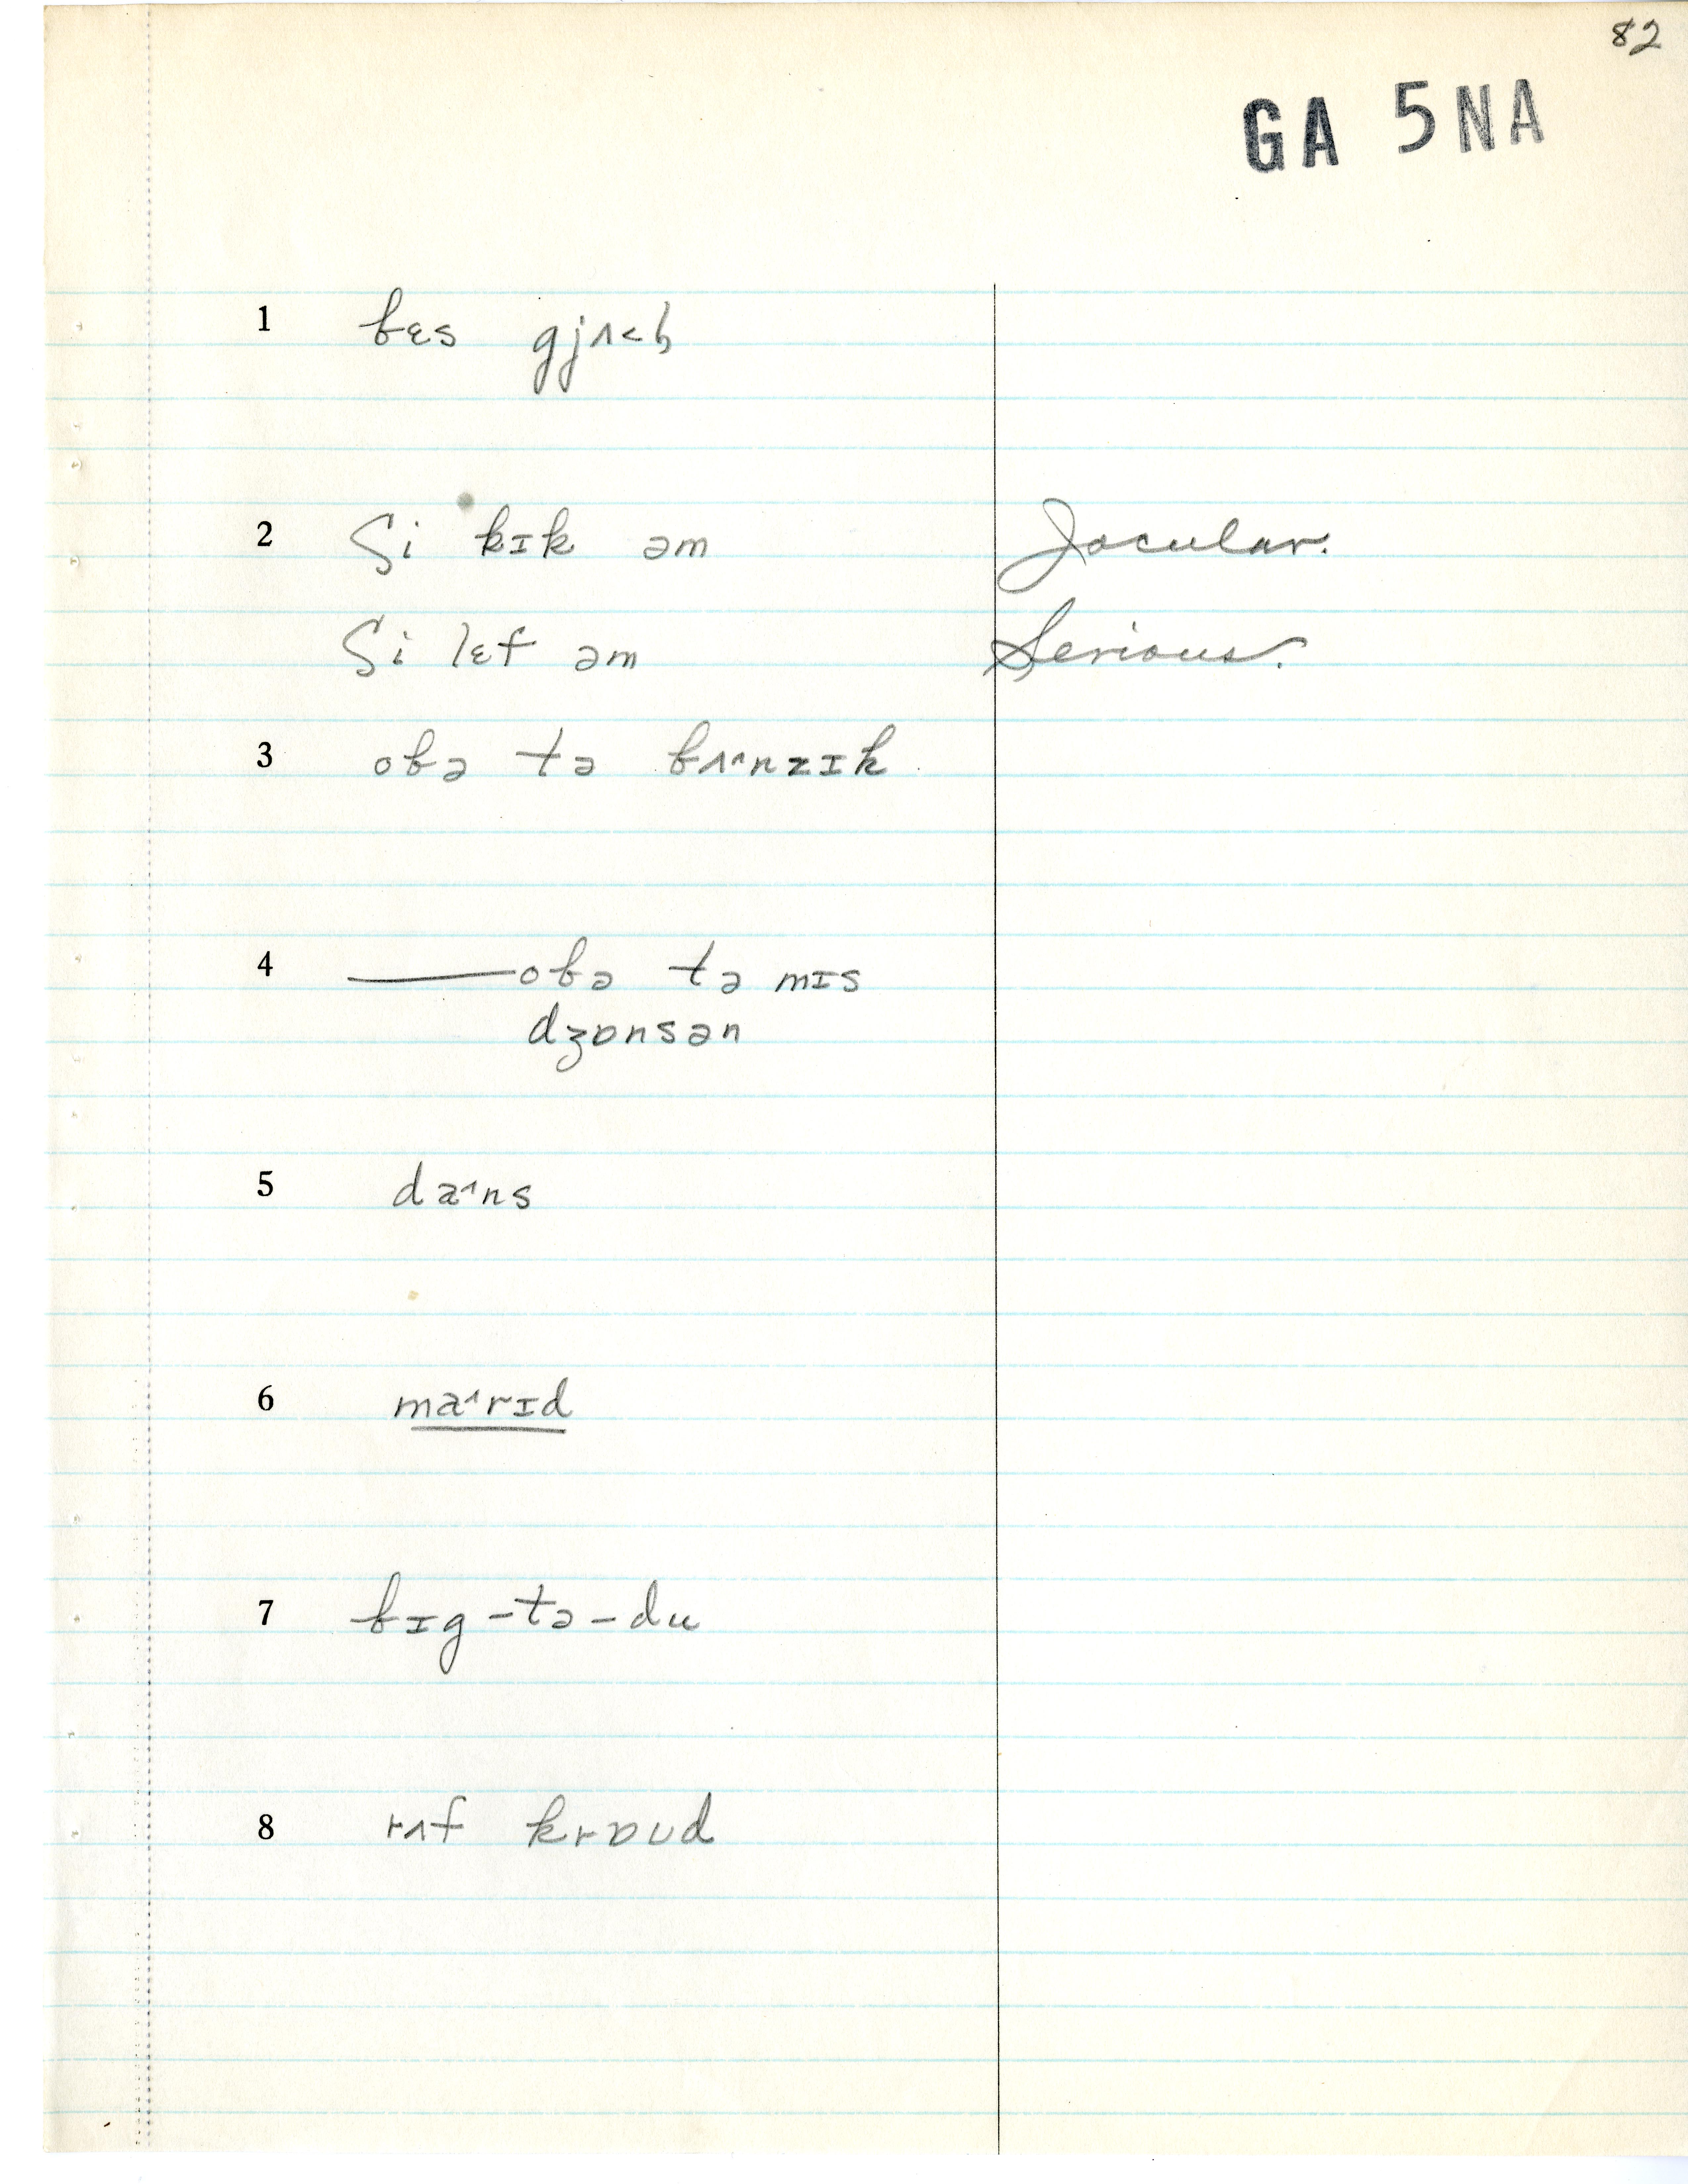 82
GA 5NA
1 bɛs gjʌ<ɫ
2 ʃi kɪk əm Jocular.
ʃi lɛf əm Serious.
3 obə tə bʌ^nzɪk
4 ——obə tə mɪs
dʒɒnsən
5 da^ns
6 ma^rɪd
7 bɪg-tə-du
8 rʌf krɒʊd